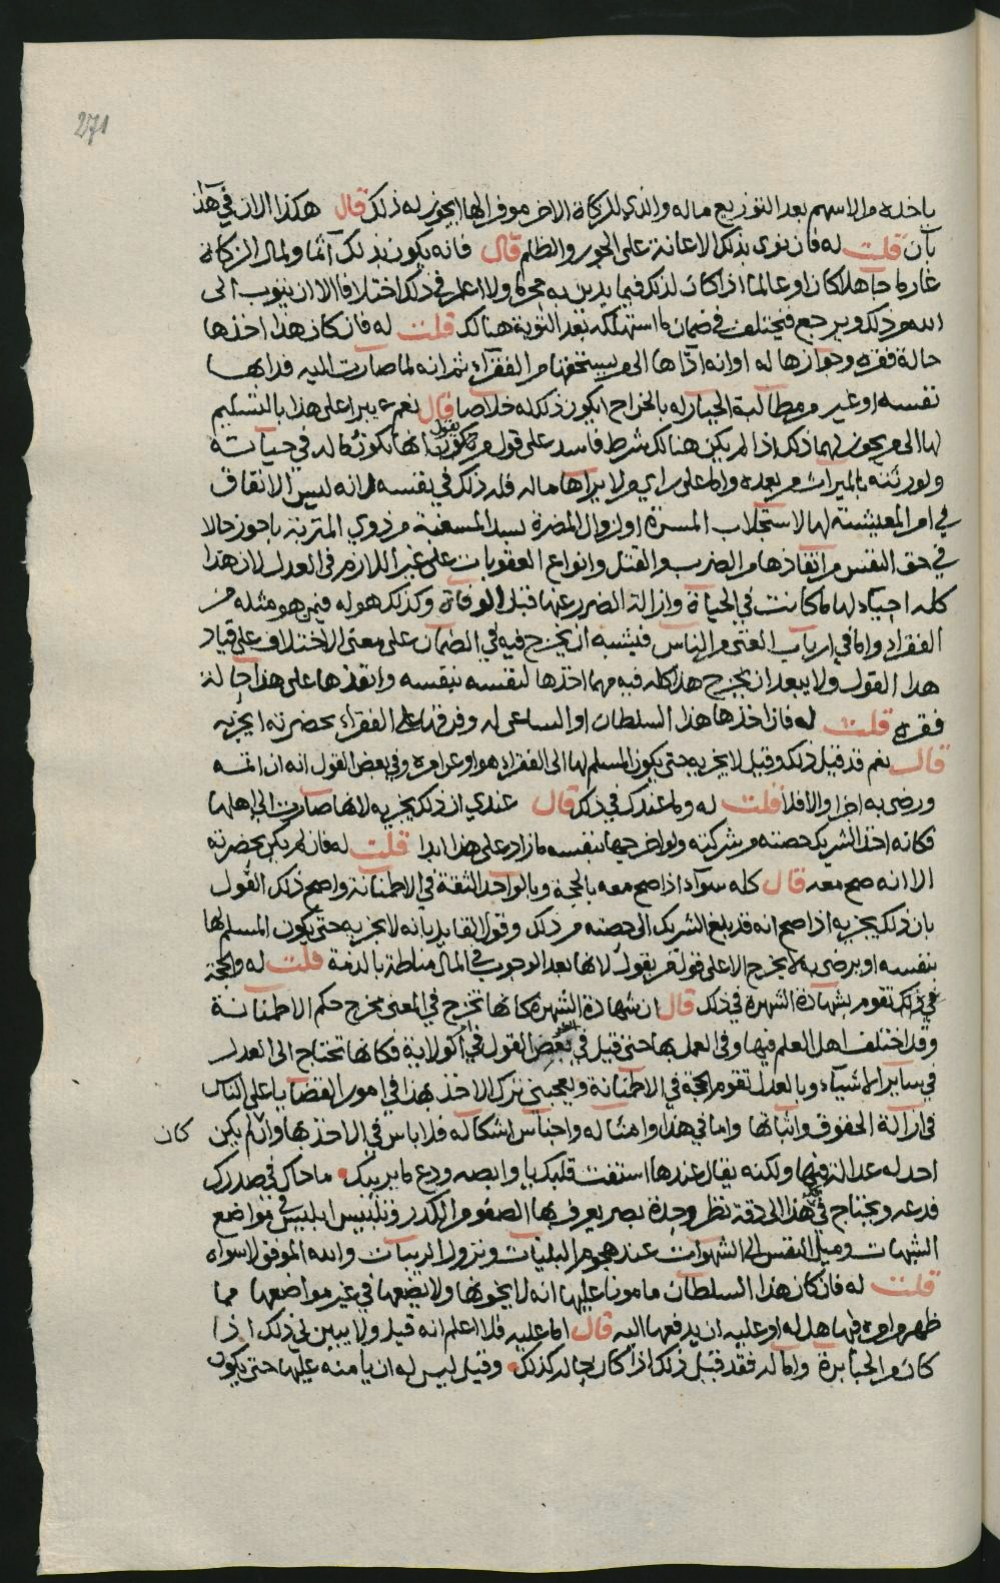 271
ياخذه من الاسهم بعد التوزيع ماله والذي للزكاة الاخر موفر لها ايجوز له ذلك قال هكذا الان في هذا
بان قلت له فان نوى بذلك الاعانة على الجور والظلم قال فانه يكون بذلك آثما ولمال الزكاة
غارما جاهلا كان او عالما اذا كان لذلك فيما يدين به محرما ولا اعلم في ذلك اختلافا الا ان يتوب الى
الله من ذلك ويرجع فيختلف في ضمان ما استهلكه بعد التوبة هنالك قلت له فان كان هذا اخذها
حالة فقره وجوازها له او انه ادّاها الى من يستحقها من الفقراء ثم انه لما صارت اليه فدا بها
نفسه او غيره من مطالبة الجبار له بالخراج ايكون ذلك له خلاصا قال نعم يبرا على هذا بالتسليم
لها الى من يجوز لهما ذلك اذا لم يكن هنالك شرط فاسد على قول من يقول انها تكون ماله في حياته
ولورثته بالميراث من بعده واما على راي من لا يراها ماله فله ذلك في نفسه لانه ليس الانفاق
في امر المعيشة لها لاستجلاب المسرة او لزوال المضرة لسد المسغبة من ذوي المتربة باجوز حالا
في حق النفس من انقاذها من الضرب والقتل وانواع العقوبات على غير اللازم في العدل لان هذا
كله احياء لها ما كانت في الحياة وازالة الضرر عنها قبل الوفاة وكذلك هو له فيمن هو مثله من
الفقراء واما في ارباب الغنى من الناس فيشبه ان يخرج فيه في الضمان على معنى الاختلاف على قياد
هذا القول ولا يبعد ان يخرج هذا كله فيه مهما اخذها لنفسه بنفسه وانقذها على هذا حالة
فقره قلت له فان اخذها هذا السلطان او الساعي له وفرقها على الفقراء بحضرته ايجزيه
قال نعم قد قيل ذلك وقيل لا يجزيه حتى يكون المسلم لها الى الفقراء هو او عن امره وفي بعض القول انه ان اتمه
ورضي به اجزا والا فلا قلت له وما عندك في ذلك قال عندي ان ذلك يجزيه لانها صارت الى اهلها
فكانه اخذ الشريك حصته من شركته ولو اخرجها بنفسه ما زاد على هذا ابدا قلت له فان لم يكن بحضرته
الا انه صح معه قال كله سواء اذا صح معه بالحجة وبالواحد الثقة في الاطمانة واصح ذلك القول
بان ذلك يجزيه اذا صح انه قد بلغ الشريك الى حصته من ذلك وقول القايل بانه لا يجزيه حتى يكون المسلم لها
بنفسه او يرضى به لا يخرج الا على قول من يقول لانها بعد الوجوب في المال مناطة بالذمة قلت له والحجة
في ذلك تقوم بشهادة الشهرة في ذلك قال ان شهادة الشهرة كانها تخرج في المعنى مخرج حكم الاطمانة
وقد اختلف اهل العلم فيها وفي العمل بها حتى قيل في بعض القول في الولاية فكانها تحتاج الى العدل
في ساير الاشياء وبالعدل تقوم الحجة في الاطمانة ويعجبني ترك الاخذ بهذا في امور القضايا على الناس
في ازالة الحقوق واثباتها واما في هذا وامثاله واجناس اشكاله فلا باس في الاخذ بها وان لم يكن كان
احد له عدالة فيها ولكنه يقال عندها استفت قلبك يا وابصه ودع ما يريبك ما حاك في صدرك
فدعه ويحتاج في هذا الى دقة نظر وحدة بصر يعرف بها الصفو من الكدر وتلبيس ابليس في مواضع
الشبهات وميل النفس الى الشهوات عند هجوم البليات ونزول الريبات والله الموفق لا سواه
قلت له فان كان هذا السلطان مامونا عليها انه لا يخونها ولا يضعها في غير مواضعها مما
ظهر من امره فيها هل له او عليه ان يدفعها اليه قال اما عليه فلا اعلم انه قيل ولا يبين لي ذلك اذا
كان من الجبابرة واما له فقد قيل ذلك اذا كان حاله كذلك وقيل ليس له ان يامنه عليها حتى يكون